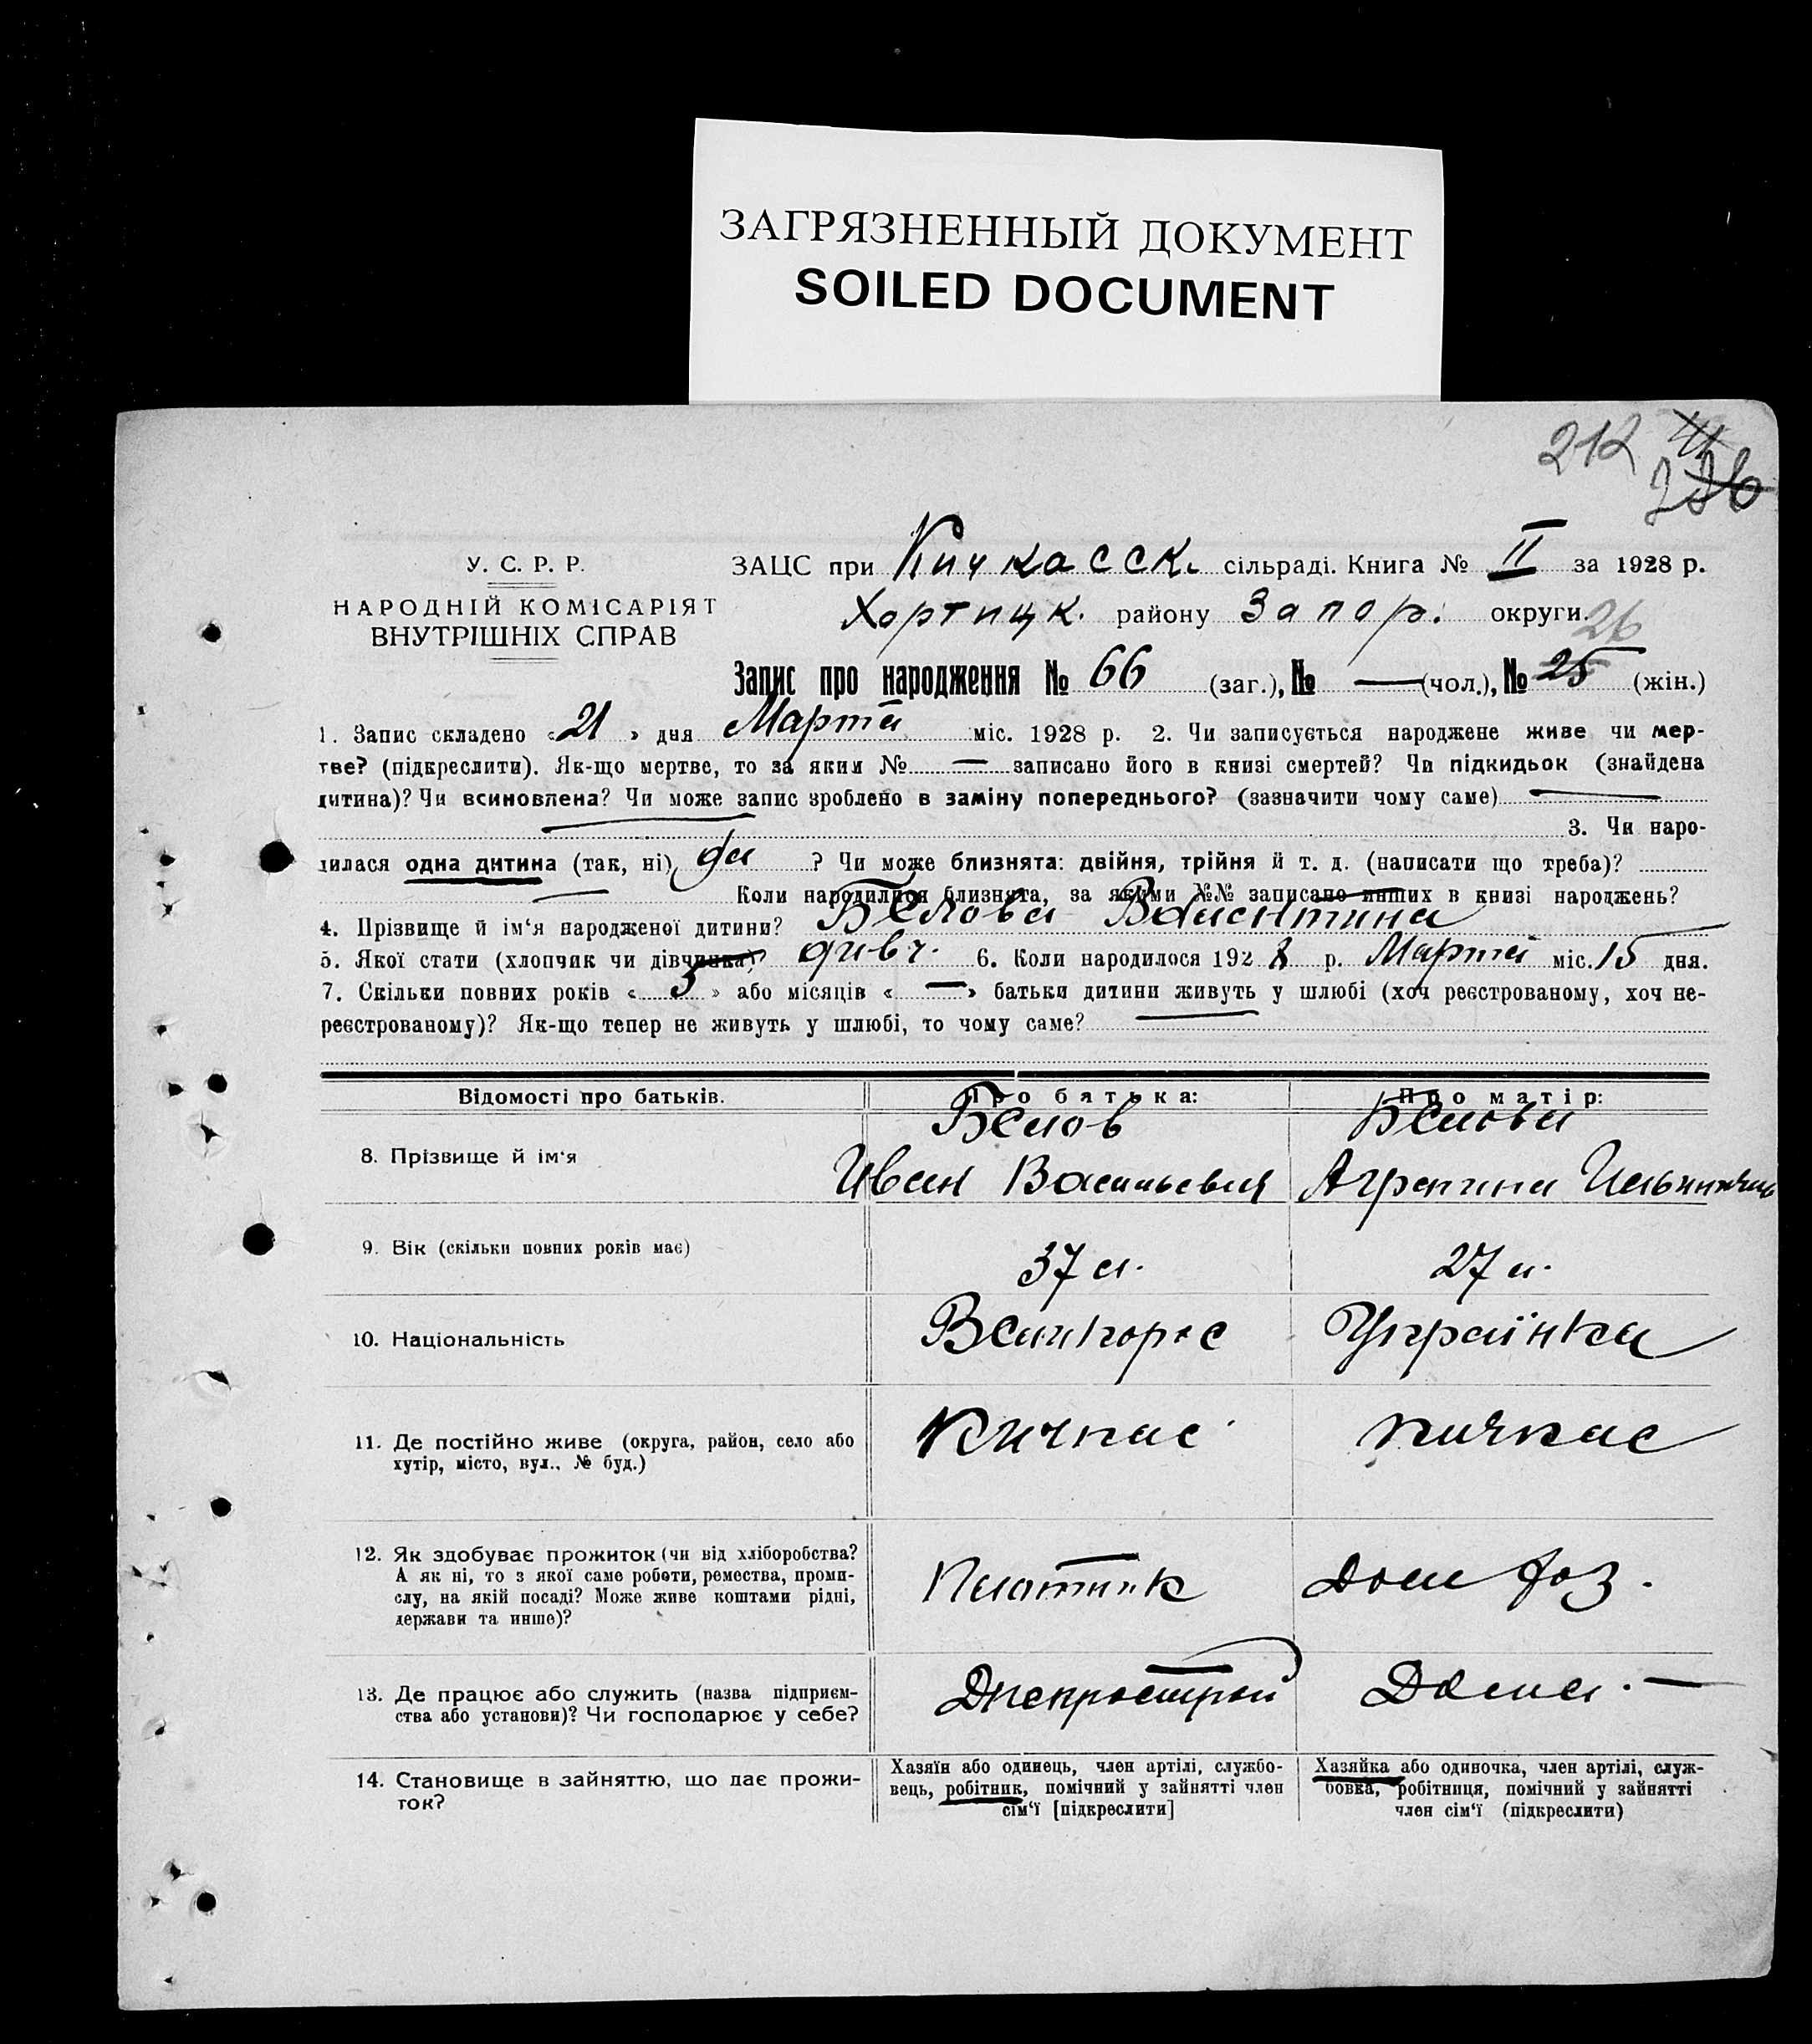 ЗАГРЯЗНЕННЫЙ ДОКУМЕНТ
SOILED DOCUMENT
212
У. С. Р. Р.
НАРОДНІЙ КОМІСАРІЯТ
ВНУТРІШНІХ СПРАВ
ЗАЦС при Кичкасск. сільраді. Книга № II за 1928 р.
Хортицк. району Запор. округи.
26
Запис про народження № 66 (заг.), № — (чол.), № 25 (жін.)
1. Запис складено «21» дня Марта міс. 1928 р. 2. Чи записується народжене живе чи мер-
тве? (підкреслити). Як-що мертве, то за яким № — записано його в книзі смертей? Чи підкидьок (знайдена
дитина)? Чи всиновлена? Чи може запис зроблено в заміну попереднього? (зазначити чому саме) —
— 3. Чи наро-
дилася одна дитина (так, ні) да ? Чи може близнята: двійня, трійня й т. д. (написати що треба)?
— Коли народилися близнята, за якими №№ записано инших в книзі народжень?
4. Прізвище й ім‘я народженої дитини? Белова Валентина
5. Якої стати (хлопчик чи дівчинка)? дивч. 6. Коли народилося 1928 р. Марта міс. 15 дня.
7. Скільки повних років «5» або місяців «—» батьки дитини живуть у шлюбі (хоч реєстрованому, хоч не-
реєстрованому)? Як-що тепер не живуть у шлюбі, то чому саме?
Відомості про батьків. Про батька: Про матір:
8. Прізвище й ім‘я
Белов Белова
Иван Васильевич Агрепина
9. Вік (скільки повних років має) 37 л. 27 л.
10. Національність Великорос Українка
11. Де постійно живе (округа, район, село або
хутір, місто, вул., № буд.)
Кичкас Кичкас
12. Як здобуває прожиток (чи від хліборобства?
А як ні, то з якої саме роботи, ремества, проми-
слу, на якій посаді? Може живе коштами рідні,
держави та инше)?
Плотник Дом хоз.
13. Де працює або служить (назва підприєм-
ства або установи)? Чи господарює у себе?
Днепрострой Дома. —
14. Становище в зайняттю, що дає прожи-
ток?
Хазяїн або одинець, член артілі, службо-
вець, робітник, помічний у зайнятті член
сім‘ї [підкреслити]
Хазяйка або одиночка, член артілі, служ-
бовка, робітниця, помічний у зайнятті
член сім‘ї (підкреслити)